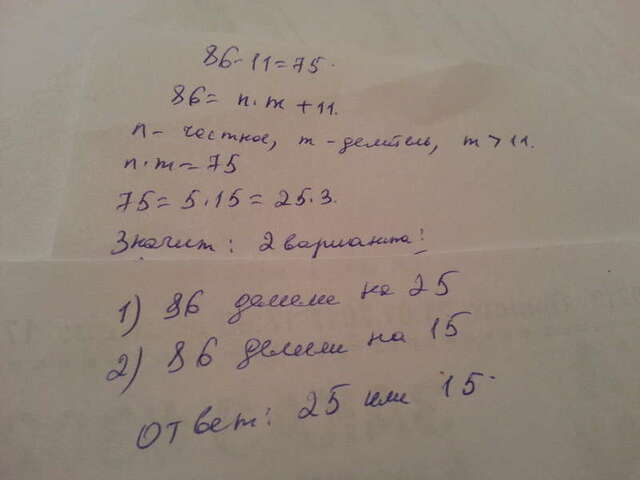 86-11=75.
86= n·m +11.
n- частное, m - делитель, m > 11.
n·m=75
75= 5·15 = 25·3.
Значит: 2 варианта:
1) 86 делили на 25
2) 86 делили на 15
Ответ: 25 или 15.